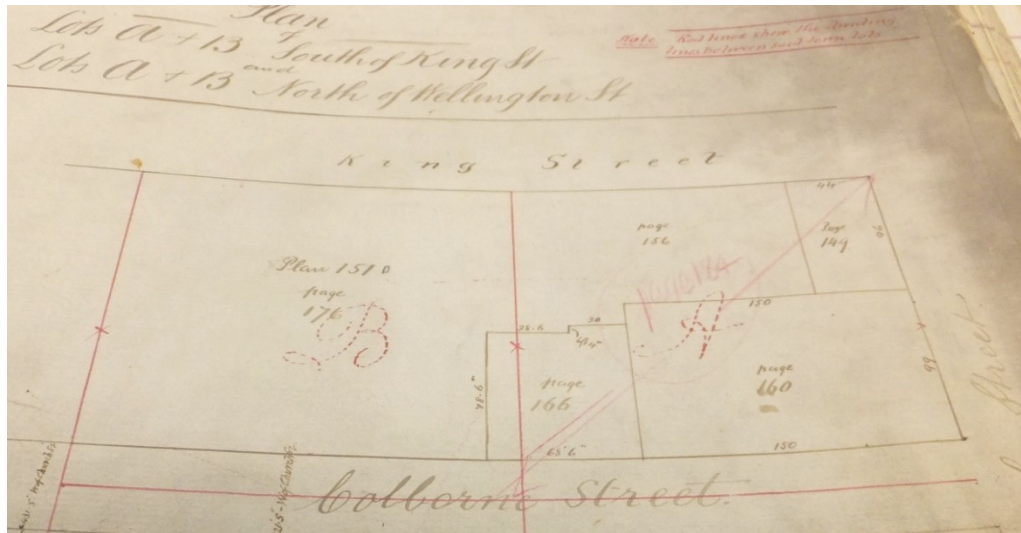 Plan
of
Lots A + B South of King St
and
Lots A + B North of Wellington St
Note Red lines show the dividing
lines between said town lots
King Street
44
page
156
Page
149
90
Plan 151 D
page
176
B
A
150
28.6
30
page
166
78.6"
page
160
99
65'6"
150
Colborne Street.
Street